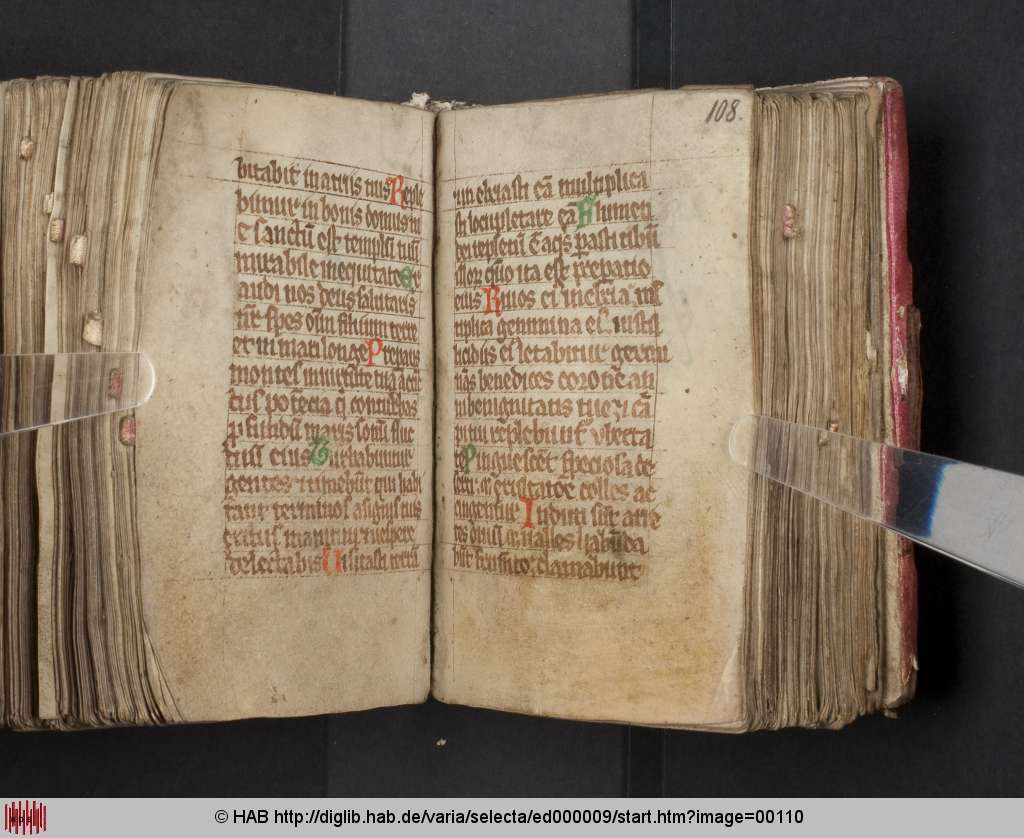 bitabit in atriis tuis Reple
bimur in bonis domus tu
e sanctū est templū tuū
mirabile in equitate Ex
audi nos deus salutaris
nr̄ spes oīm finium terre
et in mari longe Preparās
montes in uirtute tua acci̅c
tus potēcia q̄ conturbas
ꝓfundū maris sonū fluc
tuū eius Turbabuntur
gentes ⁊ timebūt qui habi
tant terminos a signis tuis
exitus matutini ⁊ uespere
delectabis Uisitasti terrā
108.
rū inebriasti eā multiplica
sti locupletare eā Flumen
dei repletū ē aq̄s parasti cibū
illoꝝ qm̄ ita est p̄paratio
eius Riuos ei inebria ml̄
tiplica genimina ei⁹ in stil
licidiis ei⁹ letabitur germi
nās benedices corone an
ni benignitatis tue ⁊ cā
pi tui replebunt̄ uberta
te Pinguescēt speciosa de
serti ⁊ exultatōe colles ac
cingentur Induti sūt arie
tes ouiū ⁊ ualles habūda
būt frumento clamabunt
© HAB http://diglib.hab.de/varia/selecta/ed000009/start.htm?image=00110